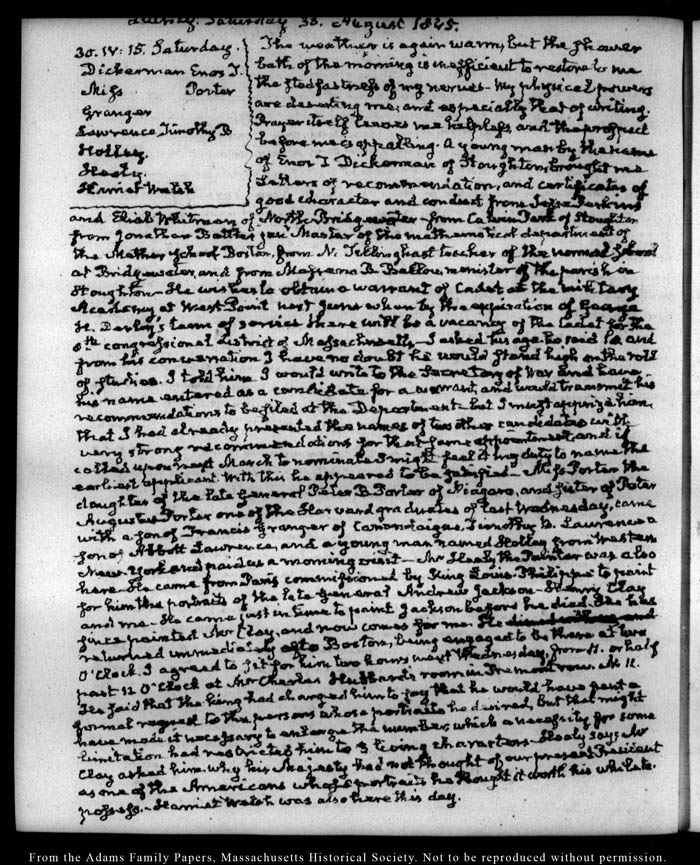 Quincy. Saturday 30. August 1845.
30. IV: 15. Saturday.
Dickerman Enos T.
Miss Porter
Granger
Lawrence Timothy B
Holley.
Healy.
Harriet Welsh
The weather is again warm, but the shower
bath of the morning is inefficient to restore to me
the stedfastness of my nerves. My physical powers
are deserting me, and especially that of writing.
Prayer itself leaves me helpless, and the prospect
before me is appalling. A young man by the name
of Enos T Dickerman of Stoughton, brought me
Letters of recommendation, and certificates of
good character and conduct from Jesse Perkins
and Eliab Whitman of North Bridgewater from Calvin Park of Stoughton
from Jonathan Battles junr. Master of the mathematical department of
the Mather School Boston, from N. Tillinghast teacher of the normal School
at Bridgewater, and from Massena B. Ballou minister of the parish in
Stoughton. He wishes to obtain a warrant of Cadet at the military
Academy at West Point next June when by the expiration of George
H. Derby's term of service there will be a vacancy of the Cadet for the
8th. congressional district of Massachusetts. I asked his age. he said 18. and
from his conversation I have no doubt he would stand high on the roll
of studies. I told him I would write to the Secretary of War and have
his name entered as a candidate for a warrant, and would transmit his
recommendations to be filed at the Department. but I must apprize him,
that I had already presented the names of two other candidates with
very strong recommendations for the same appointment, and if
called upon next March to nominate I might feel it my duty to name the
earliest applicant. With this he appeared to be satisfied. Miss Porter the
daughter of the late General Peter B. Porter of Niagara, and sister of Peter
Augustus Porter one of the Harvard graduates of last Wednesday, came
with a son of Francis Granger of Canandaigua, Timothy B. Lawrence a
son of Abbott Lawrence, and a young man named Holley from Western
New-York and paid us a morning visit. Mr Healy the Painter was also
here. He came from Paris commissioned by King Louis-Philippe to paint
for him the portraits of the late General Andrew Jackson. Henry Clay
and me. He came just in time to paint Jackson before he died. He has
since painted Mr Clay, and now comes for me. He
returned immediately to Boston, being engaged to be there at two
O'Clock. I agreed to sit for him two hours next Wednesday, from 11. or half
past 12 O'Clock at Mr Charles Hubbard's room in Tremont row.
He said that the king had charged him to say that he would have sent a
formal request to the persons whose portraits he desired, but that might
have made it necessary to enlarge the number, which a necessity for some
limitation had restricted him to 3 living characters. Healy says Mr
Clay asked him why his Majesty had not thought of our present President
as one of the Americans whose portraits he thought it worth his while to
possess. Harriet Welsh was also here this day.
From the Adams Family Papers, Massachusetts Historical Society. Not to be reproduced without permission.